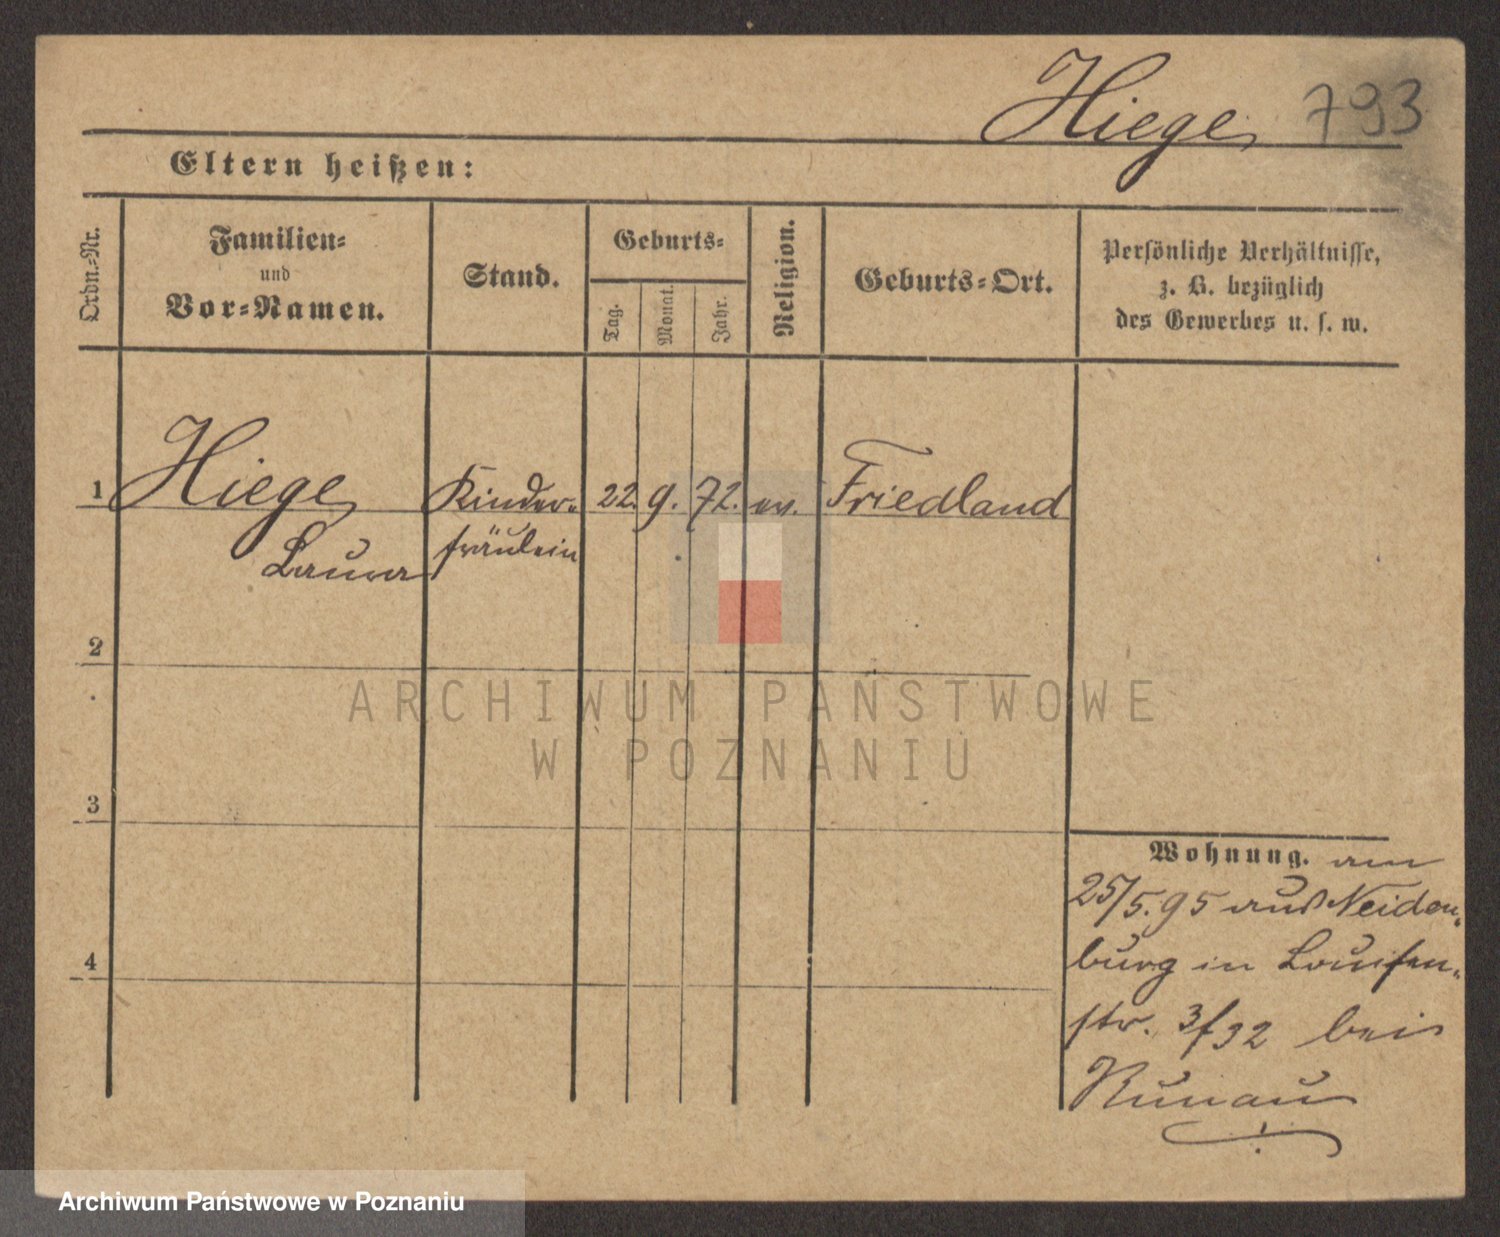 Hiege 793
Eltern heißen:
Ordn.-Nr.
Familien-
und
Vor-Namen.
Stand.
Geburts-
Tag.
Monat.
Jahr.
Religion.
Geburts-Ort.
Persönliche Verhältnisse,
z. B. bezüglich
des Gewerbes u. s. w.
1 Hiege Kinder- 22. 9. 72. ev. Friedland
Laura fräulein
2
3
4
Wohnung. am
25/5.95 aus Neiden-
burg in Louisen-
str. 3/32 bei
Runau
ARCHIWUM PAŃSTWOWE
W POZNANIU
Archiwum Państwowe w Poznaniu